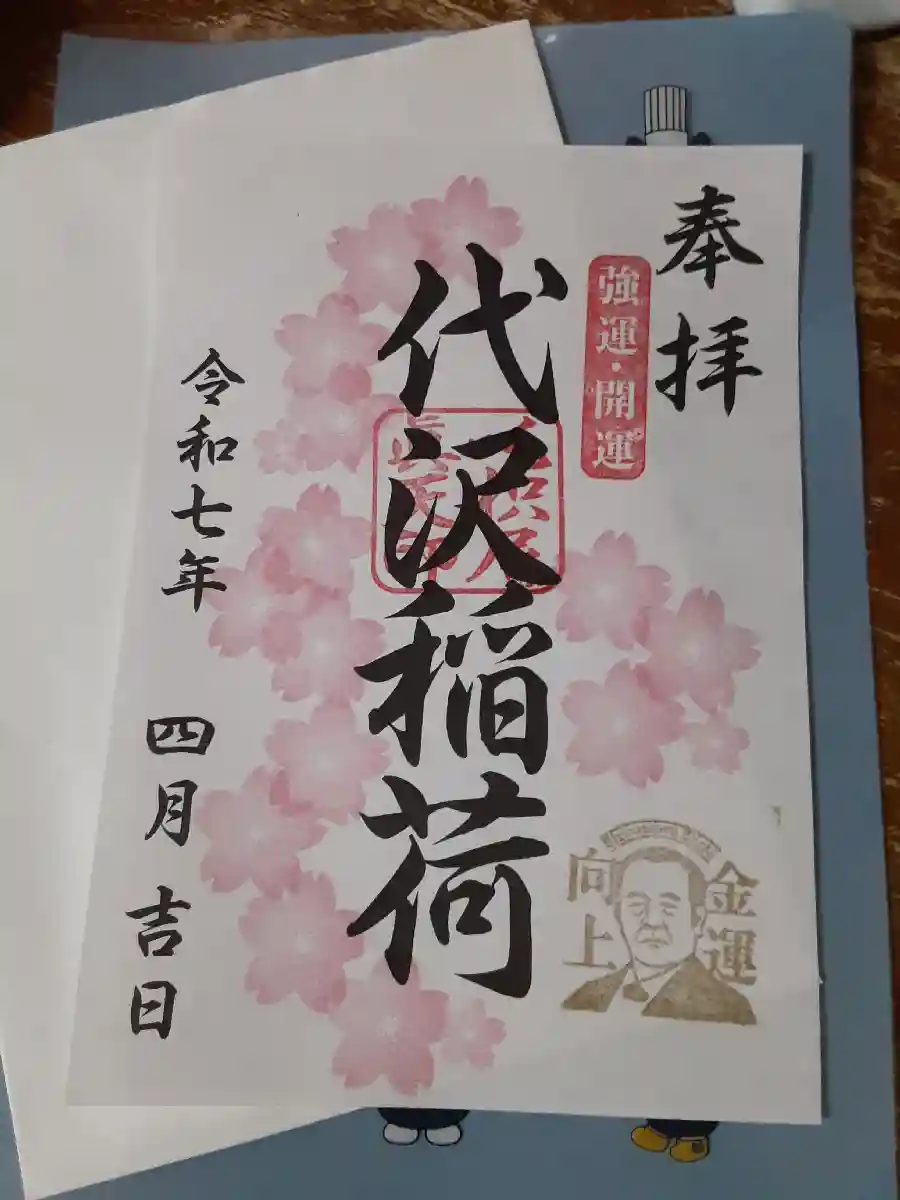 奉拝
強運・開運
代沢稲荷
金運
向上
令和七年
四月 吉日